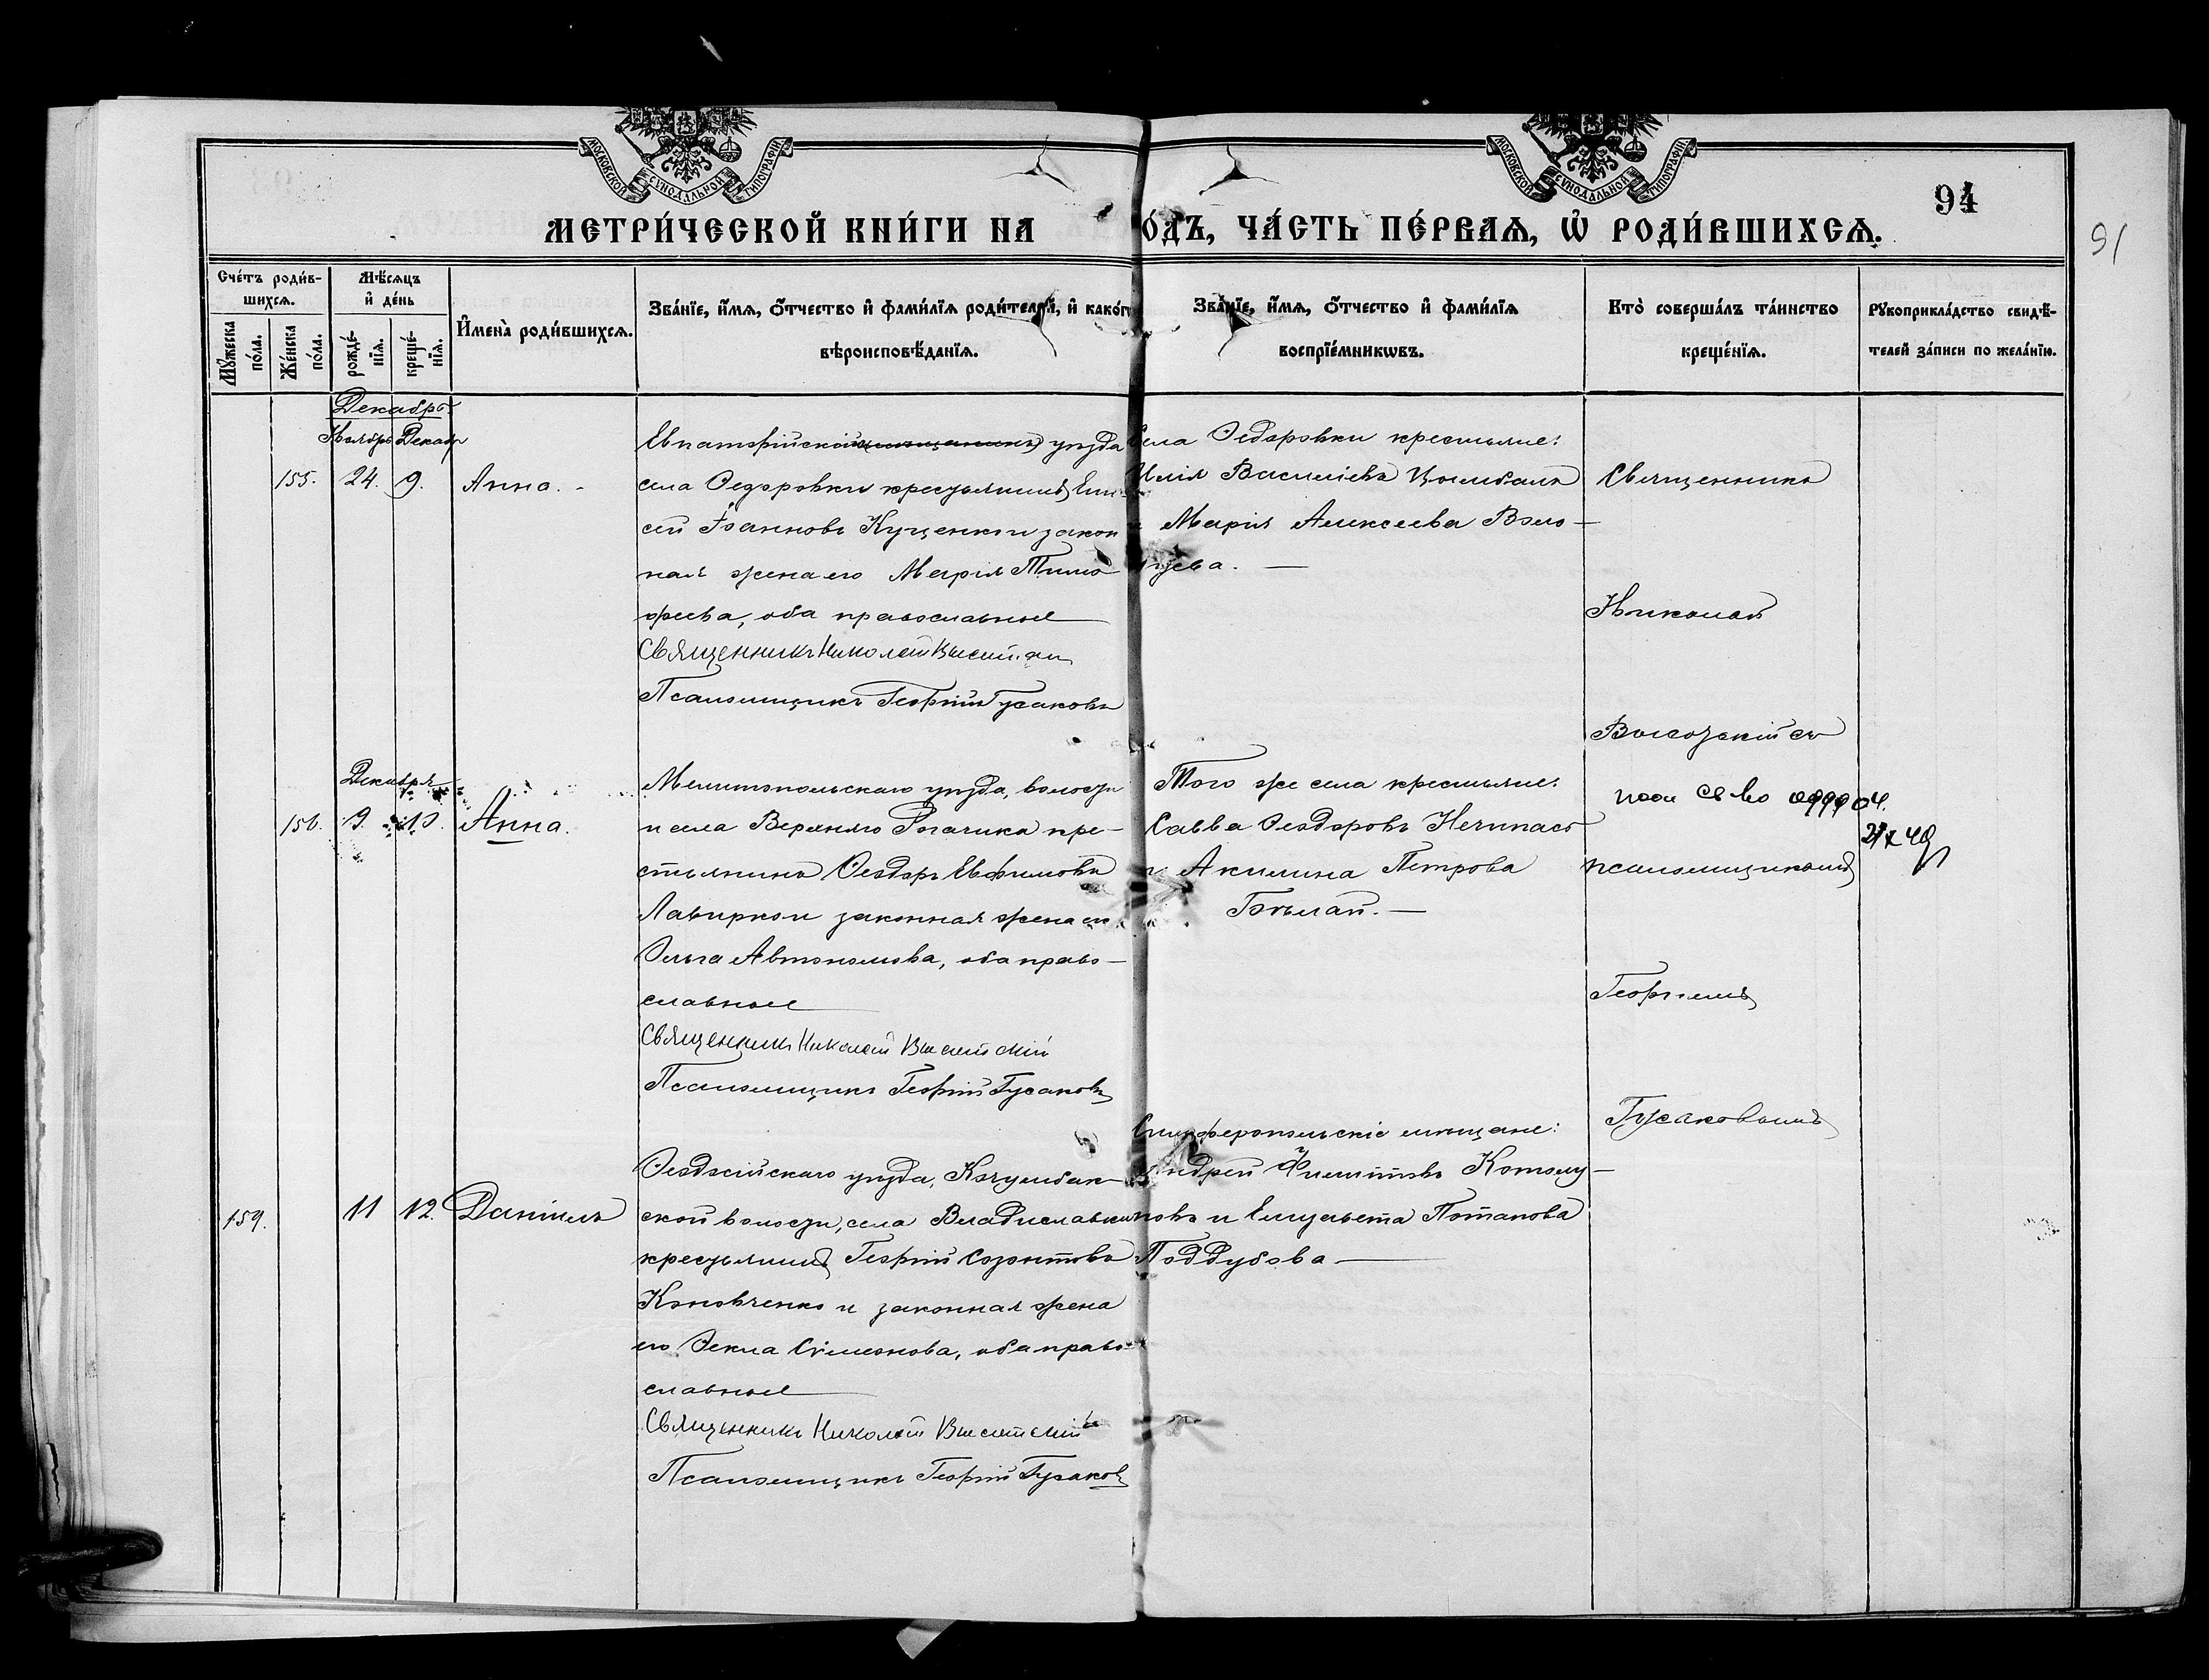 МОСКОВСКОЙ СѴНОДАЛЬНОЙ ТИПОГРАФІИ
МОСКОВСКОЙ СѴНОДАЛЬНОЙ ТИПОГРАФІИ
94
91
МЕТРИ́ЧЕСКОЙ КНИ́ГИ НА
О́ДЪ, ЧА́СТЬ ПЕ́РВАѦ, Ѡ҆ РОДИ́ВШИХСѦ.
Сче́тъ роди́в-
шихсѧ.
Мꙋ́жеска по́ла.
Же́нска по́ла.
Мѣ́сѧцъ
и҆ де́нь
рожде́-нїѧ.
креще́-нїѧ.
И҆мена̀ роди́вшихсѧ.
Зва́нїе, и҆́мѧ, ѻ҆́тчество и҆ фами́лїѧ роди́телей, и҆ како́г
вѣроисповѣ́данїѧ.
Зва́нїе, и҆́мѧ, ѻ҆́тчество и҆ фами́лїѧ
воспрїе́мникѡвъ.
Кто̀ соверша́лъ та́инство
креще́нїѧ.
Рꙋкоприкла́дство свидѣ́-
телей за́писи по жела́нїю.
Декабрь
Ноябрь Декабр
155. 24. 9. Анна.
уѣзда
села Ѳедоровки крестьянинъ Ели-
сей Іоанновъ Куценко и закон
ная жена его Марія Тимо-
феева, оба православные
Священникъ Николай
Псаломщикъ Георгій Гусаковъ
Села Ѳедоровки крестьяне:
Илія Василіевъ Цымбалъ
и Марія Алексеева Воло-
Священникъ
Николай
Декабря
156. 9. 10. Анна.
Мелитопольскаго уѣзда, волости
и села Верхняго Рогачика кре-
стьянинъ Ѳеодоръ Евфимовъ
Лавирко и законная жена его
Ольга Автономова, оба право-
славные
Священникъ Николай
Псаломщикъ Георгій Гусаковъ
Того же села крестьяне:
Савва Ѳеодоровъ Нечипасъ
и Акилина Петрова
псаломщикомъ
Георгіемъ
Гусаковымъ
159. 11 12. Даніилъ
Ѳеодосійскаго уѣзда,
ской волости, села Владиславки
крестьянинъ Георгій Созонтовъ
Коновченко и законная жена
его Ѳекла Сѵмеонова, оба право-
славные
Священникъ Николай
Псаломщикъ Георгій Гусаковъ
Симферопольскіе мѣщане:
Андрей Филиповъ Котолу-
повъ и Елисавета Потапова
Поддубова